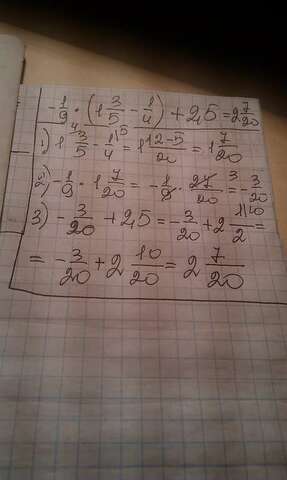 -1/9 · (1 3/5 - 1/4) + 2,5 = 2 7/20
1) 1 3/5 \4 - 1/4 \5 = 1 12-5/20 = 1 7/20
2) -1/9 · 1 7/20 = -1/9 · 27/20 3 = -3/20
3) -3/20 + 2,5 = -3/20 + 2 1/2 \10 =
= -3/20 + 2 10/20 = 2 7/20